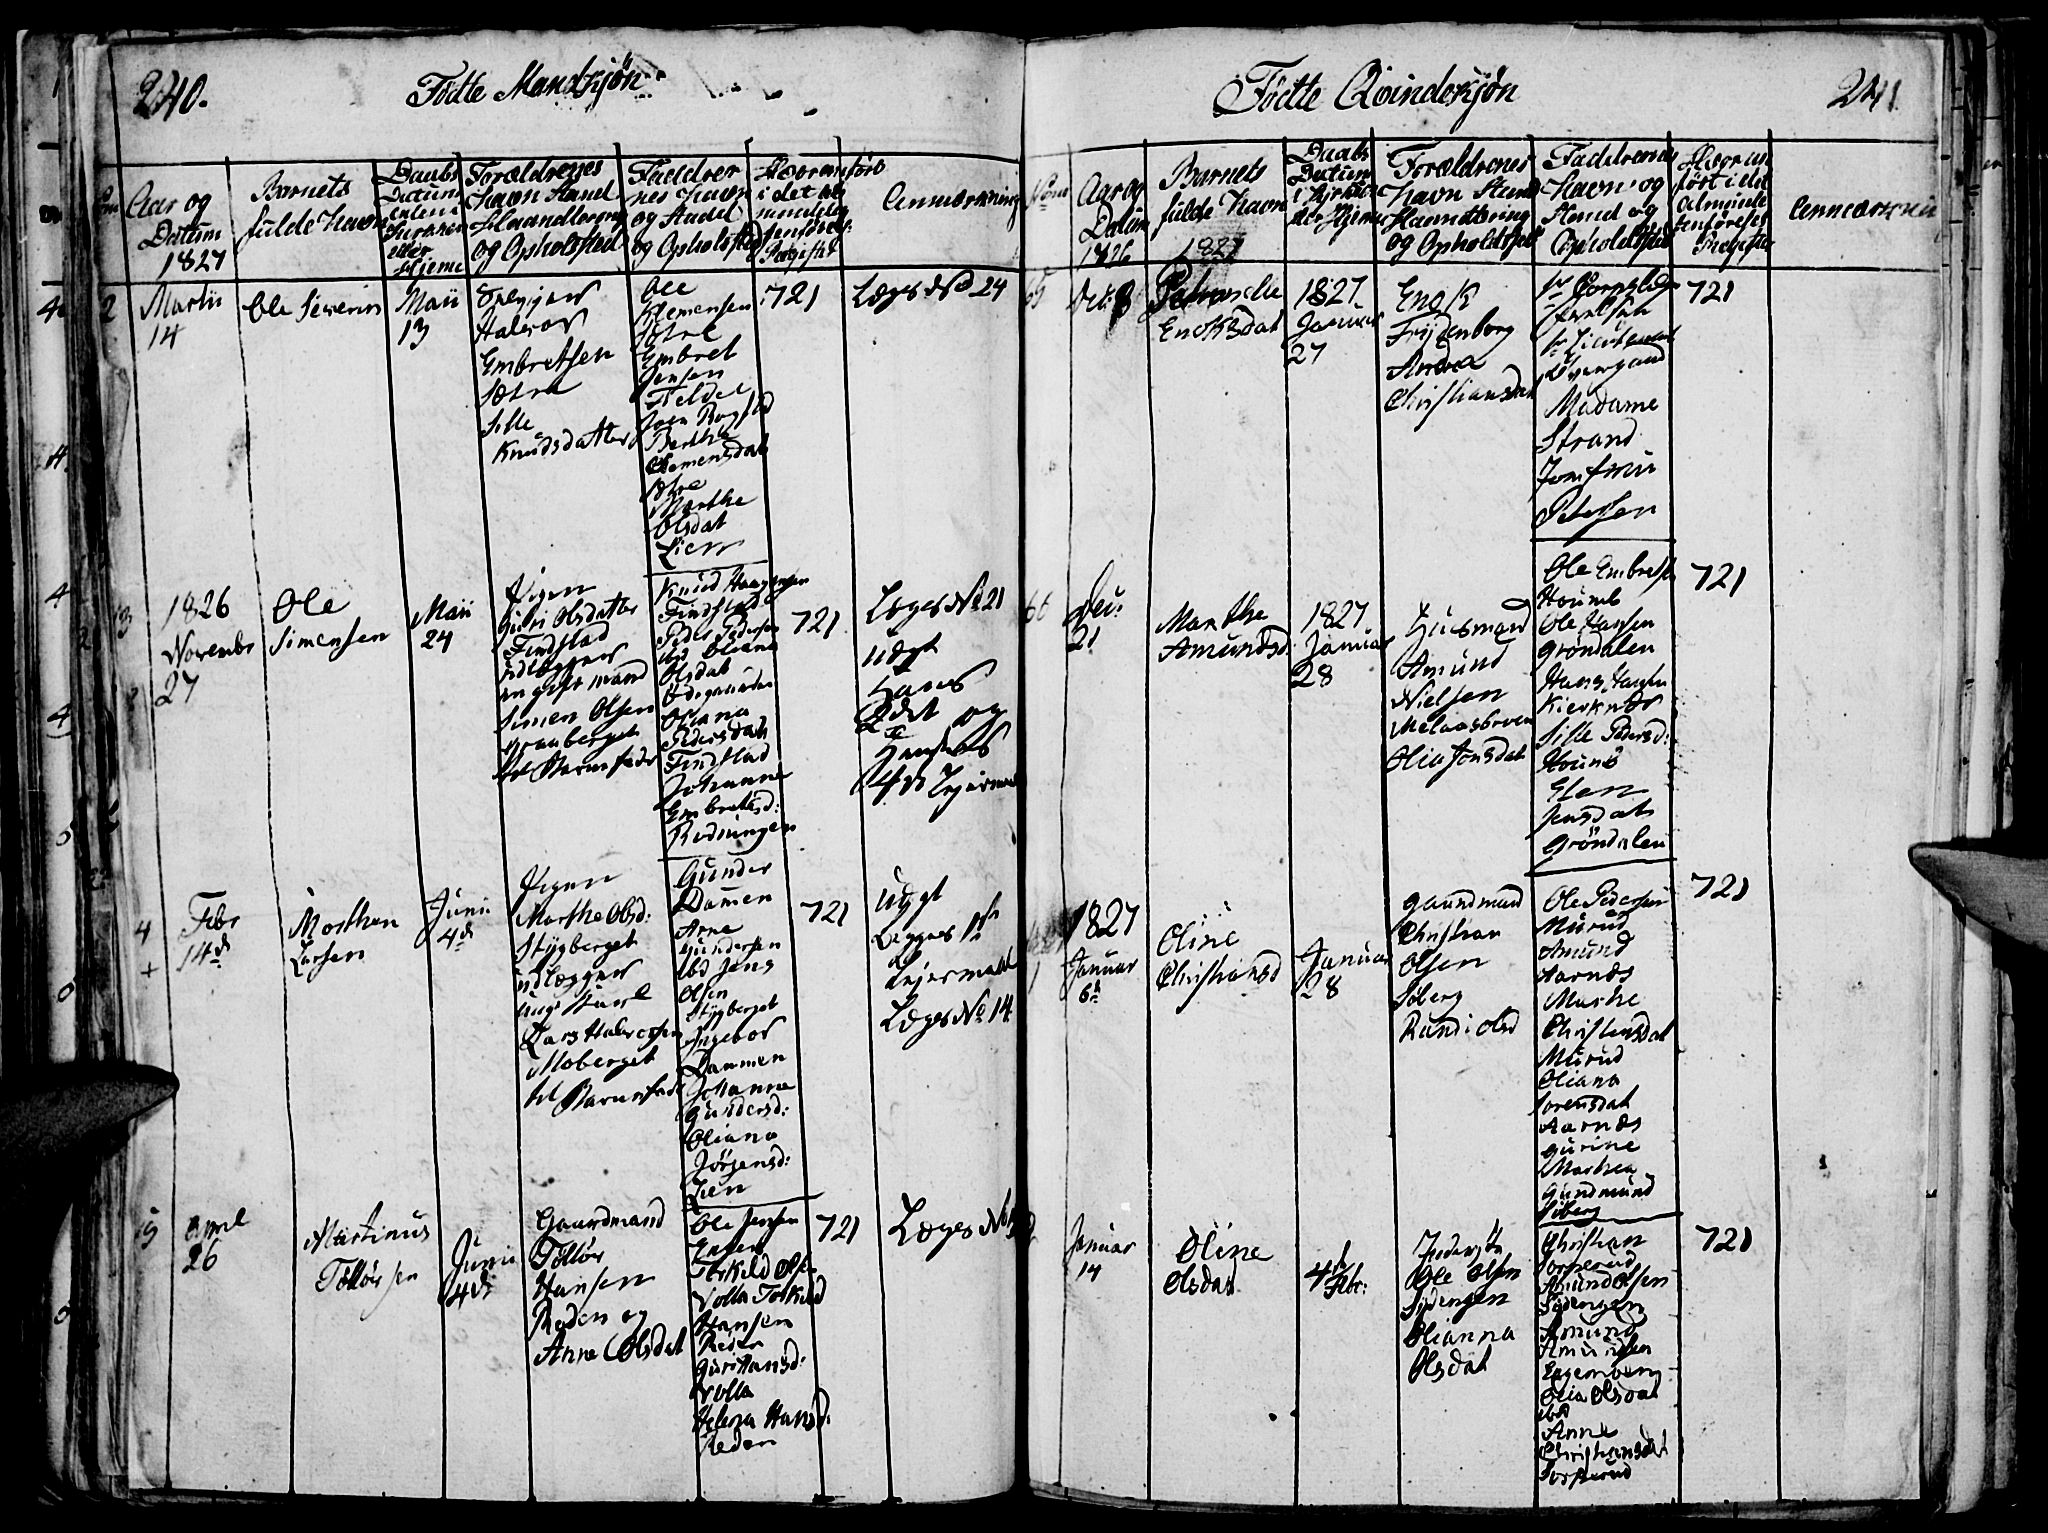 240.
Födte Mandkjön
Aar og
Datum
1827
Barnets
fulde Navn
Daabs
Datum
eller
Hjeme
Forældrenes
Navn Stand
Haandtering
og Opholdsted
Faddrer
nes Navn
og Stand
og Opholdsted
Hvor anført
i det al
mindelig
Jevnførel:
Register
Anmærkning
2
Martii
14
Ole Severin
Maii
13
Halvor
Embretsen
Sætre
Sille
Knudsdatter
Ole
Klemensen
Sætre
Embret
Jensen
Joen Rogstad
Berthe
Clemensdat
Sætre
Marthe
Olsdat
Lien
721
Læges No 24
3
1826
Novembr
27
Ole
Simensen
Maii
24
Pigen
Guri Olsdatter
Findstad
udlægger
en gift mand
Simen Olsen
Granberget
til Barnefader
Knud Haagensen
Findstad
Peder Pedersen
ibd Oliana
Olsdat
Ödegaarden
Oliana
Pedersdat
Findstad
Johanne
Embretsd:
Rydningen
721
Læges No 21
uægt
Hans
2det og
Hendes
4de Lejermaal
4
+
Febr
14de
Morthen
Larsen
Juni
4de
Pigen
Marthe Olsd:
Stygberget
udlægger
Lars Halvorsen
Moberget
til Barnefader
Gunder
Damen
Arne
Gundersen
ibd Jens
Olsen
Stygberget
Ingebor
Dammen
Johanne
Gundersd:
Oliana
Jörgensd:
Lien
721
uægt
Begges 1ste
Lejermaal
Læges No 14
5
April
26
Martinus
Tollörsen
Junii
4de
Gaardmand
Tollör
Hansen
Roden og
Anne Olsdat
Ole Jensen
Enger
Torkild Olsen
Volla Torkild
Hansen
Reden
Guri Hansd:
Volla
Helena Hansd:
Reden
721
Læges No
Födte Qvindekjön
241
Num
Aar og
Datum
1826
Barnets
fulde Navn
1827
Daabs
Datum
i Kirken
eller Hjeme
Forældrenes
Navn Stand
Haandtering
og Opholdsted
Faddrenes
Navn og
Stand og
Opholdsted
Hvor an
fört i det
Almindel
Jevnförelses
Register
Anmærkning
65
Dec: 8
Petronelle
Enoksdat
1827
Januar
27
Enok
Frydenborg
Andrea
Christiansdat
Hr Lieutenant
Overgaard
Madame
Strand
Jomfrue
Petersen
721
66
Dec:
21
Marthe
Amundsd
1827
Januar
28
Huusmand
Amund
Nielsen
Melaasbroen
Olia Jonsdat
Ole Embretsen
Houmb
Ole Hansen
Gröndalen
Hans Hansen
Kiernæs
Sille Pedersd:
Houmb
Elen
Jensdat
Gröndalen
721
1827
1
Januar
6te
Oline
Christiansd
Januar
28
Gaardmand
Christian
Olsen
Söberg
Randi Olsd
Ole Pedersen
Murud
Amund
Aarnæs
Marthe
Christensdat
Murud
Oliana
Sorensdat
Aarnæs
Gurine
Marthea
Gundmund
Söberg
721
2
Januar
14
Oline
Olsdat
4de Febr:
Inderste
Ole Olsen
Sydengen
Olianna
Olsdat
Christian
Torperud
Amund Olsen
Sydengen
Amund
Amundsen
Olia Olsdat
ibd
Anne
Christiansdat
Torperud
721